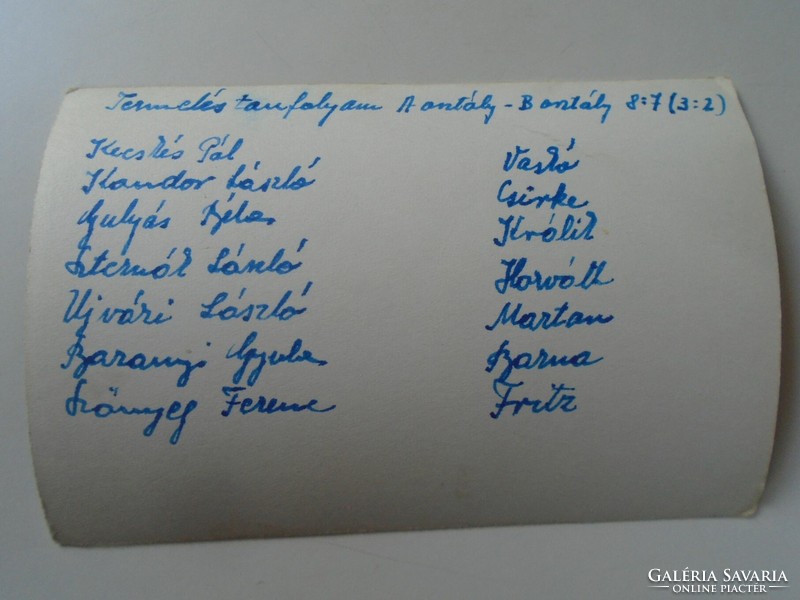 Termelés tanfolyam A osztály - B osztály 8:7 (3:2)
Kecskés Pál
Kandor László
Gulyás Béla
Szternák László
Ujvári László
Baranyi Gyula
Szőnyeg Ferenc
Vaskó
Csirke
Králik
Horváth
Martan
Barna
Fritz
GALÉRIA SAVARIA
ONLINE PIACTÉR